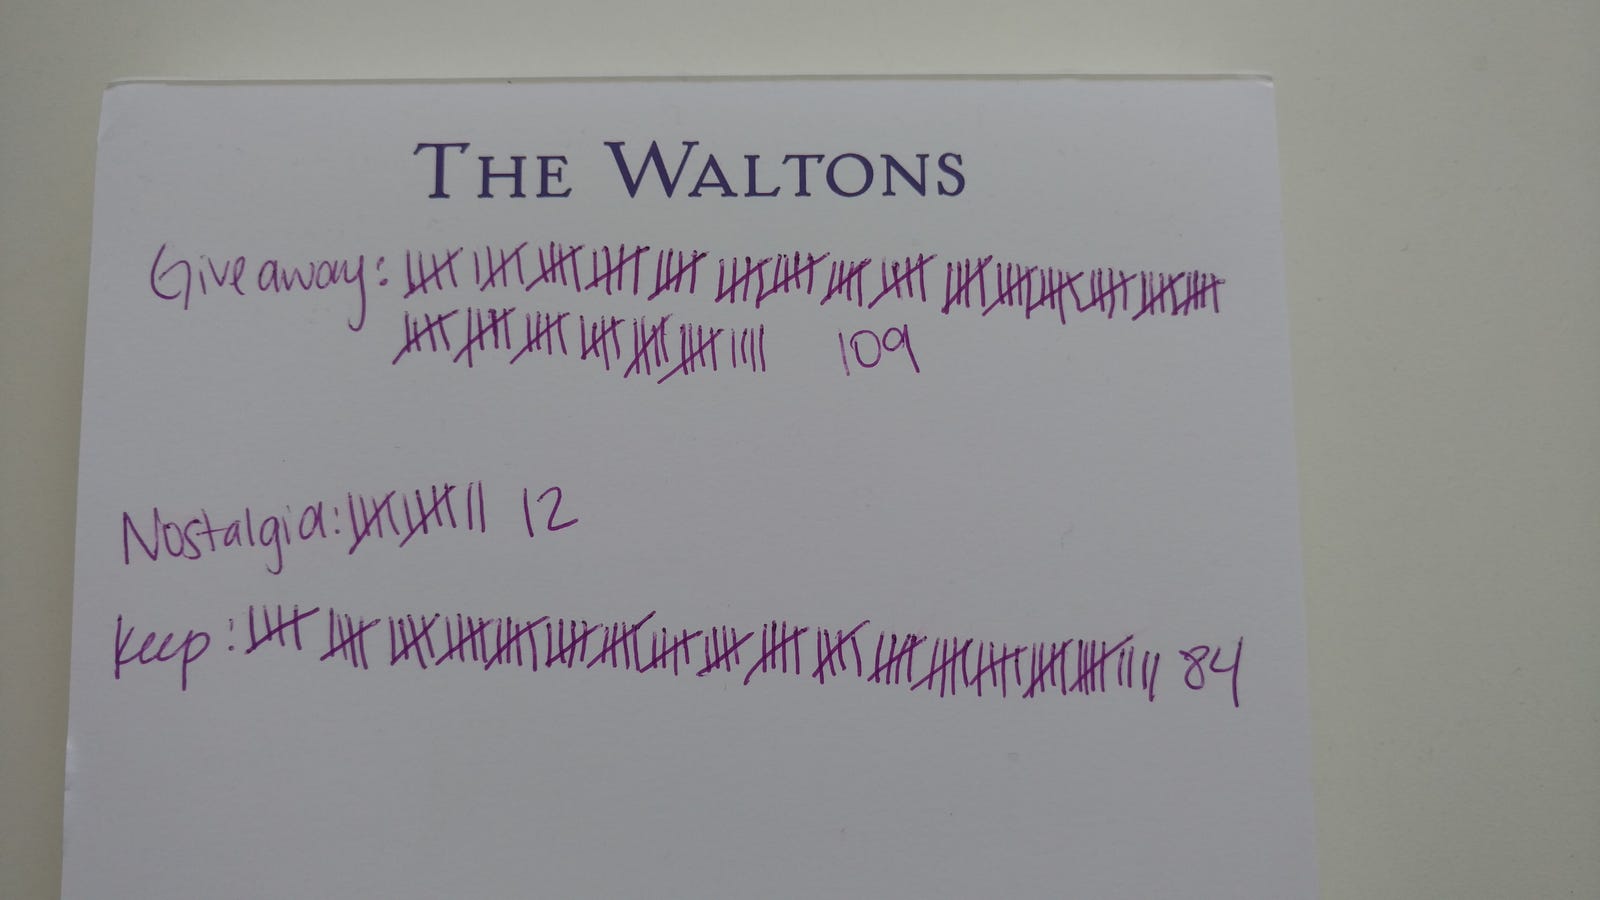 THE WALTONS
Giveaway: 𝍸 𝍸 𝍸 𝍸 𝍸 𝍸 𝍸 𝍸 𝍸 𝍸 𝍸 𝍸 𝍸 𝍸 𝍸
𝍸 𝍸 𝍸 𝍸 𝍸 𝍸 |||| 109
Nostalgia: 𝍸 𝍸 || 12
Keep: 𝍸 𝍸 𝍸 𝍸 𝍸 𝍸 𝍸 𝍸 𝍸 𝍸 𝍸 𝍸 𝍸 𝍸 𝍸 𝍸 |||| 84